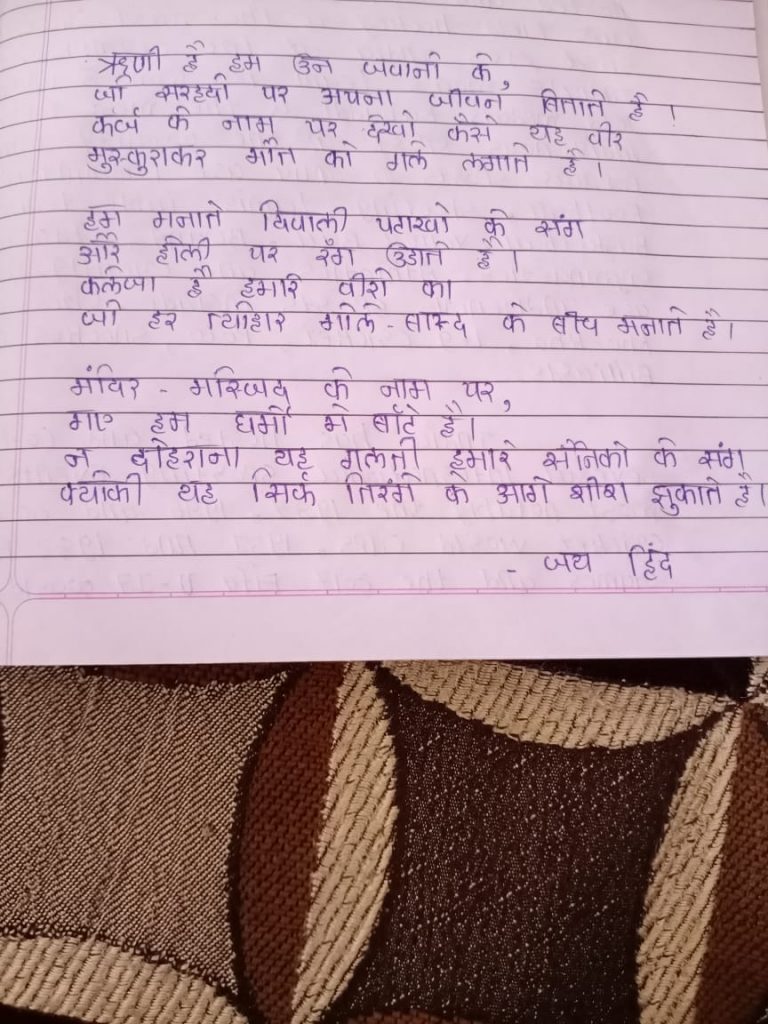 ऋणी है हम उन जवानो के,
जो सरहदो पर अपना जीवन बिताते है।
कर्ज के नाम पर देखो कैसे यह वीर
मुस्कुराकर मौत को गले लगाते है।
हम मनाते दिपाली पटाखो के संग
और होली पर रंग उडाते है।
कलेजा है हमारे वीरो का
जो हर त्योहार गोले-बारूद के बीच मनाते है।
मंदिर - मस्जिद के नाम पर,
गए हम धर्मो मे बाँटे है।
न दोहराना यह गलती हमारे सैनिको के संग
क्योकी यह सिर्फ तिरंगे के आगे शीश झुकाते है।
- जय हिंद